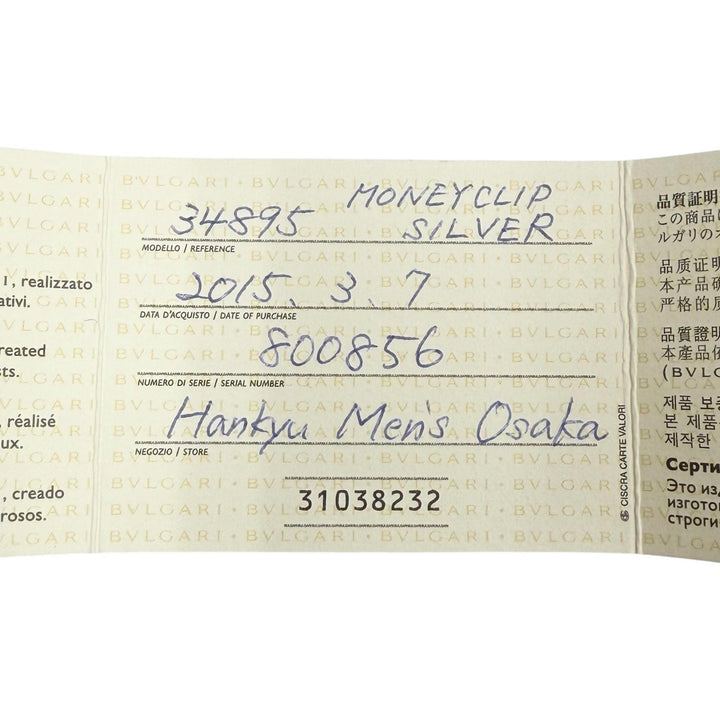 BVLGARI · BVLGARI · BVLGARI · BVLGARI
MONEYCLIP
34895 SILVER
MODELLO / REFERENCE
2015. 3. 7
DATA D'ACQUISTO / DATE OF PURCHASE
800856
NUMERO DI SERIE / SERIAL NUMBER
Hankyu Men's Osaka
NEGOZIO / STORE
31038232
CISCRA CARTE VALORI
, realizzato
ativi.
reated
sts.
, réalisé
ux.
, creado
rosos.
品質証明
この商品
ルガリのオ
品质证明
本产品确
严格的质
品質證明
本產品
(BVLG
제품 보증
본 제품
제작한
Серти
Это из
изгото
строги